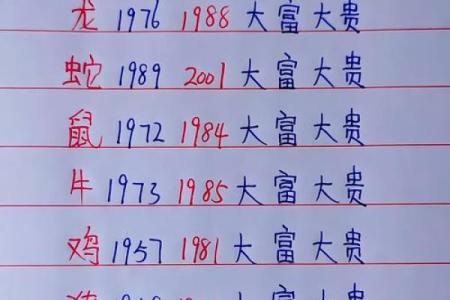 龙 1976 1988 大富大贵
蛇 1989 2001 大富大贵
鼠 1972 1984 大富大贵
牛 1973 1985 大富大贵
鸡 1957 1981 大富大贵